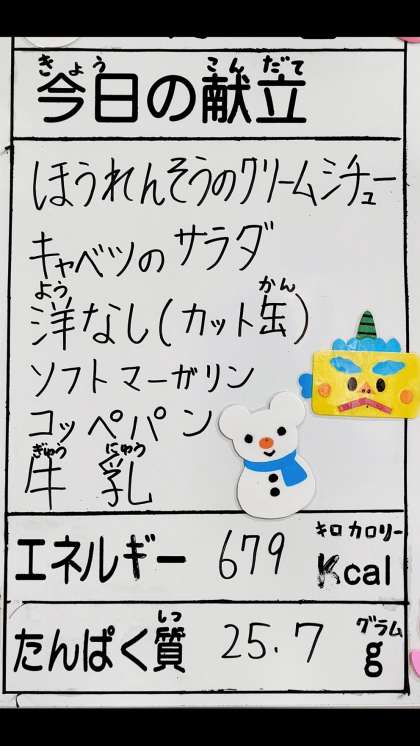 きょう こんだて
今日の献立
ほうれんそうのクリームシチュー
キャベツのサラダ
よう かん
洋なし(カット缶)
ソフトマーガリン
コッペパン
ぎゅう にゅう
牛乳
キロカロリー
エネルギー 679 Kcal
しつ グラム
たんぱく質 25.7 g